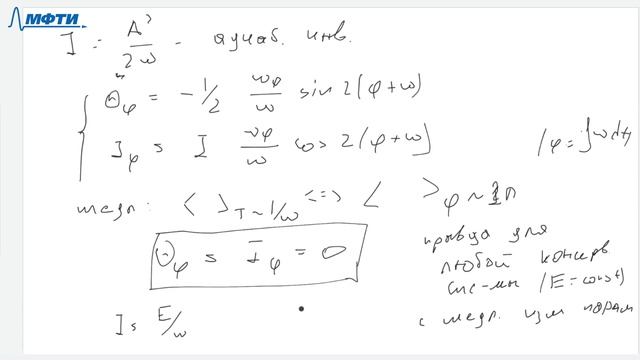 МФТИ
I = A²/2ω - адиаб. инв.
Θ_φ = -1/2 ω_φ/ω sin 2(φ+ω)
I_φ = I ω_φ/ω cos 2(φ+ω)
/φ = ∫ω dt/
медл: < >_T~1/ω <=> < >_φ~2π
Θ_φ = I_φ = 0
для
любой консерв
сис-мы /E=const/
с медл. изм парам
I = E/ω